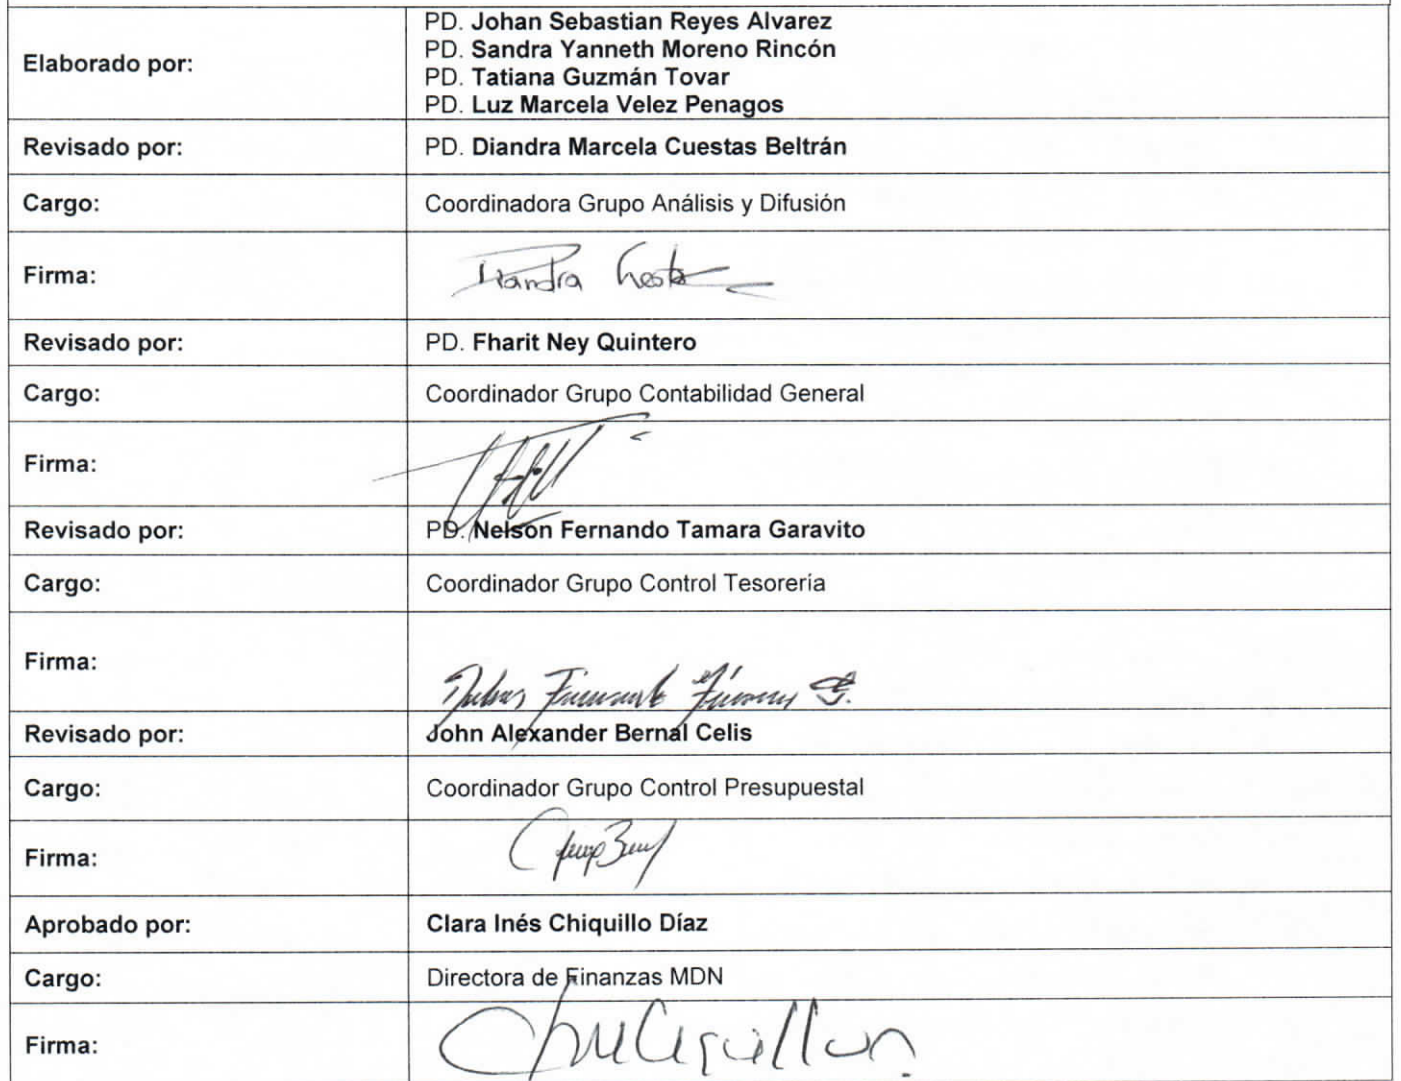 Elaborado por:
PD. Johan Sebastian Reyes Alvarez
PD. Sandra Yanneth Moreno Rincón
PD. Tatiana Guzmán Tovar
PD. Luz Marcela Velez Penagos
Revisado por:
PD. Diandra Marcela Cuestas Beltrán
Cargo:
Coordinadora Grupo Análisis y Difusión
Firma:
Diandra
Revisado por:
PD. Fharit Ney Quintero
Cargo:
Coordinador Grupo Contabilidad General
Firma:
Revisado por:
PD. Nelson Fernando Tamara Garavito
Cargo:
Coordinador Grupo Control Tesorería
Firma:
Revisado por:
John Alexander Bernal Celis
Cargo:
Coordinador Grupo Control Presupuestal
Firma:
Aprobado por:
Clara Inés Chiquillo Díaz
Cargo:
Directora de Finanzas MDN
Firma: